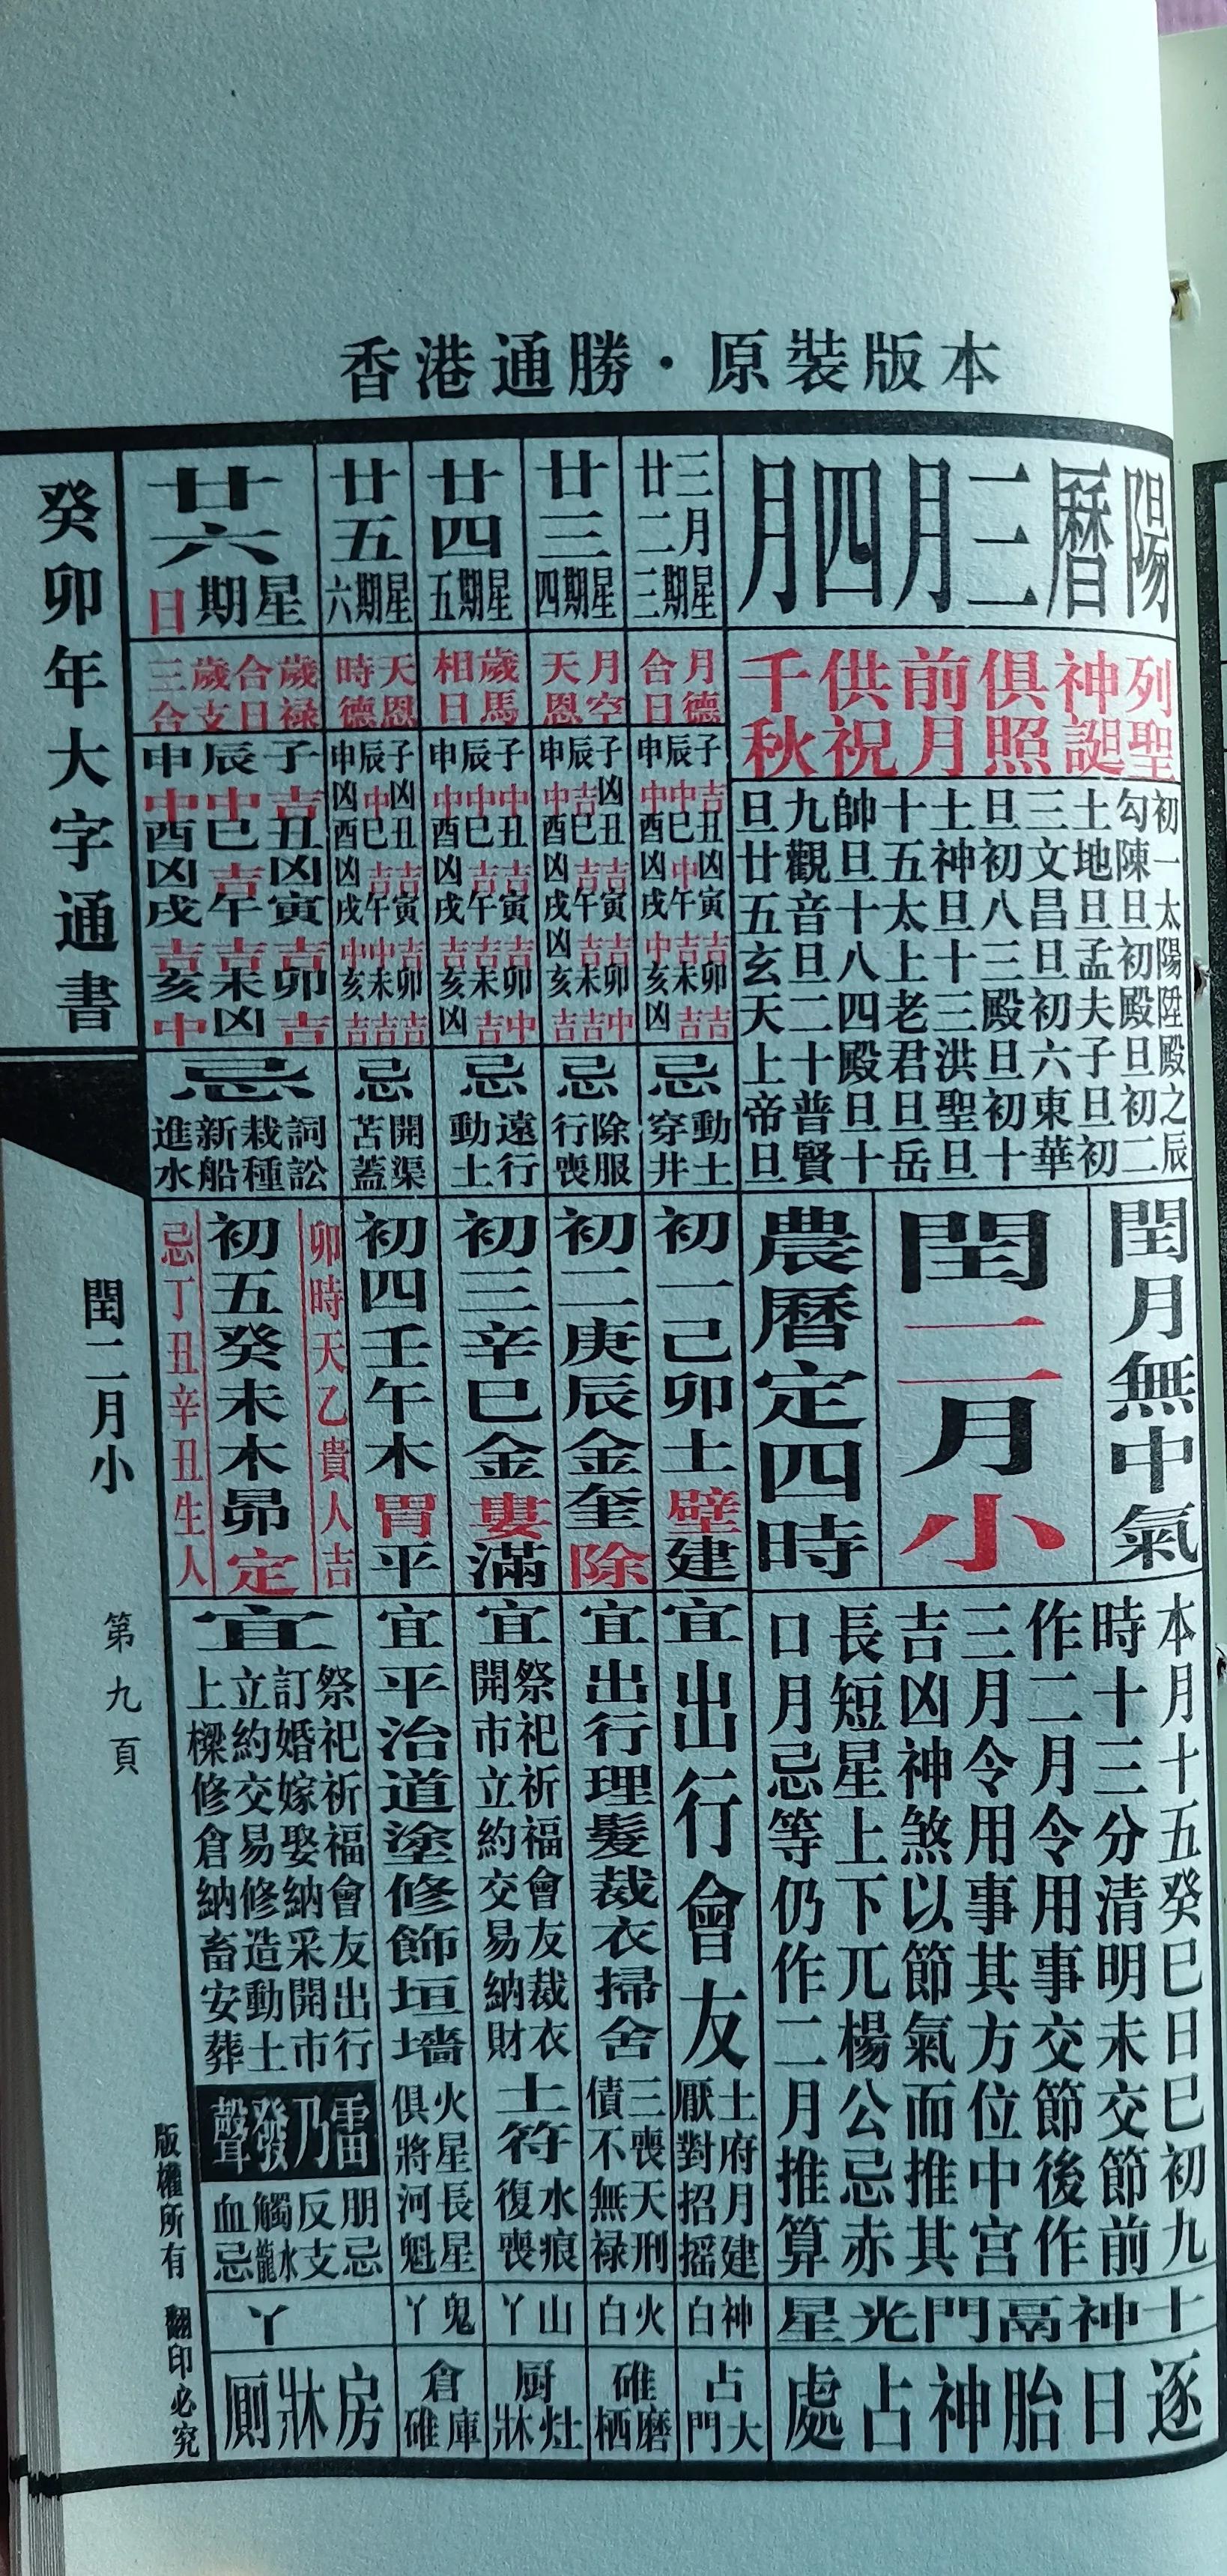 香港通勝·原裝版本
陽曆三月四月
列聖
神誕
俱照
前月
供祝
千秋
初一太陽陞殿之辰
勾陳旦初殿旦初二
土地旦孟夫子旦初
三文昌旦初六東華
旦初八三殿旦初十
土神旦十三洪聖旦
十五太上老君旦岳
帥旦十八四殿旦十
九觀音旦二十普賢
旦廿五玄天上帝旦
閏月無中氣
閏二月小
農曆定四時
本月十五癸巳日巳初九
時十三分清明未交節前
作二月令用事交節後作
三月令用事其方位中宮
吉凶神煞以節氣而推其
長短星上下兀楊公忌赤
口月忌等仍作二月推算
十神鬲門光星
逐日胎神占處
三月
廿二
星期三
月德
合日
子吉丑凶寅吉卯吉
辰中巳中午吉未吉
申中酉凶戌中亥凶
忌
動土
穿井
初一己卯土壁建
宜
出行會友
土府月建
厭對招搖
神白
占大門
廿三
星期四
月空
天恩
子凶丑吉寅吉卯中
辰吉巳吉午吉未吉
申中酉凶戌凶亥吉
忌
除服
行喪
初二庚辰金奎除
宜
出行理髮裁衣掃舍
三喪天刑
債不無祿
火白
碓磨栖
廿四
星期五
歲馬
相日
子中丑吉寅吉卯中
辰中巳吉午吉未吉
申中酉凶戌吉亥凶
忌
遠行
動土
初三辛巳金婁滿
宜
祭祀祈福會友裁衣
開市立約交易納財
土符
水痕
復喪
山丫
厨灶牀
廿五
星期六
天恩
時德
子凶丑吉寅吉卯吉
辰中巳吉午中未吉
申凶酉凶戌中亥吉
忌
開渠
苫蓋
初四壬午木胃平
宜
平治道塗修飾垣墻
火星長星
俱將河魁
鬼丫
倉庫碓
廿六
星期日
歲祿
合日
歲支
三合
子吉丑凶寅吉卯吉
辰中巳吉午吉未凶
申中酉凶戌吉亥中
忌
詞訟
栽種
新船
進水
卯時天乙貴人吉
初五癸未木昴定
忌丁丑辛丑生人
宜
祭祀祈福會友出行
訂婚嫁娶納采開市
立約交易修造動土
上樑修倉納畜安葬
雷乃發聲
朋忌
反支
觸水龍
血忌
丫
房牀厠
癸卯年大字通書
閏二月小
第九頁
版權所有 翻印必究